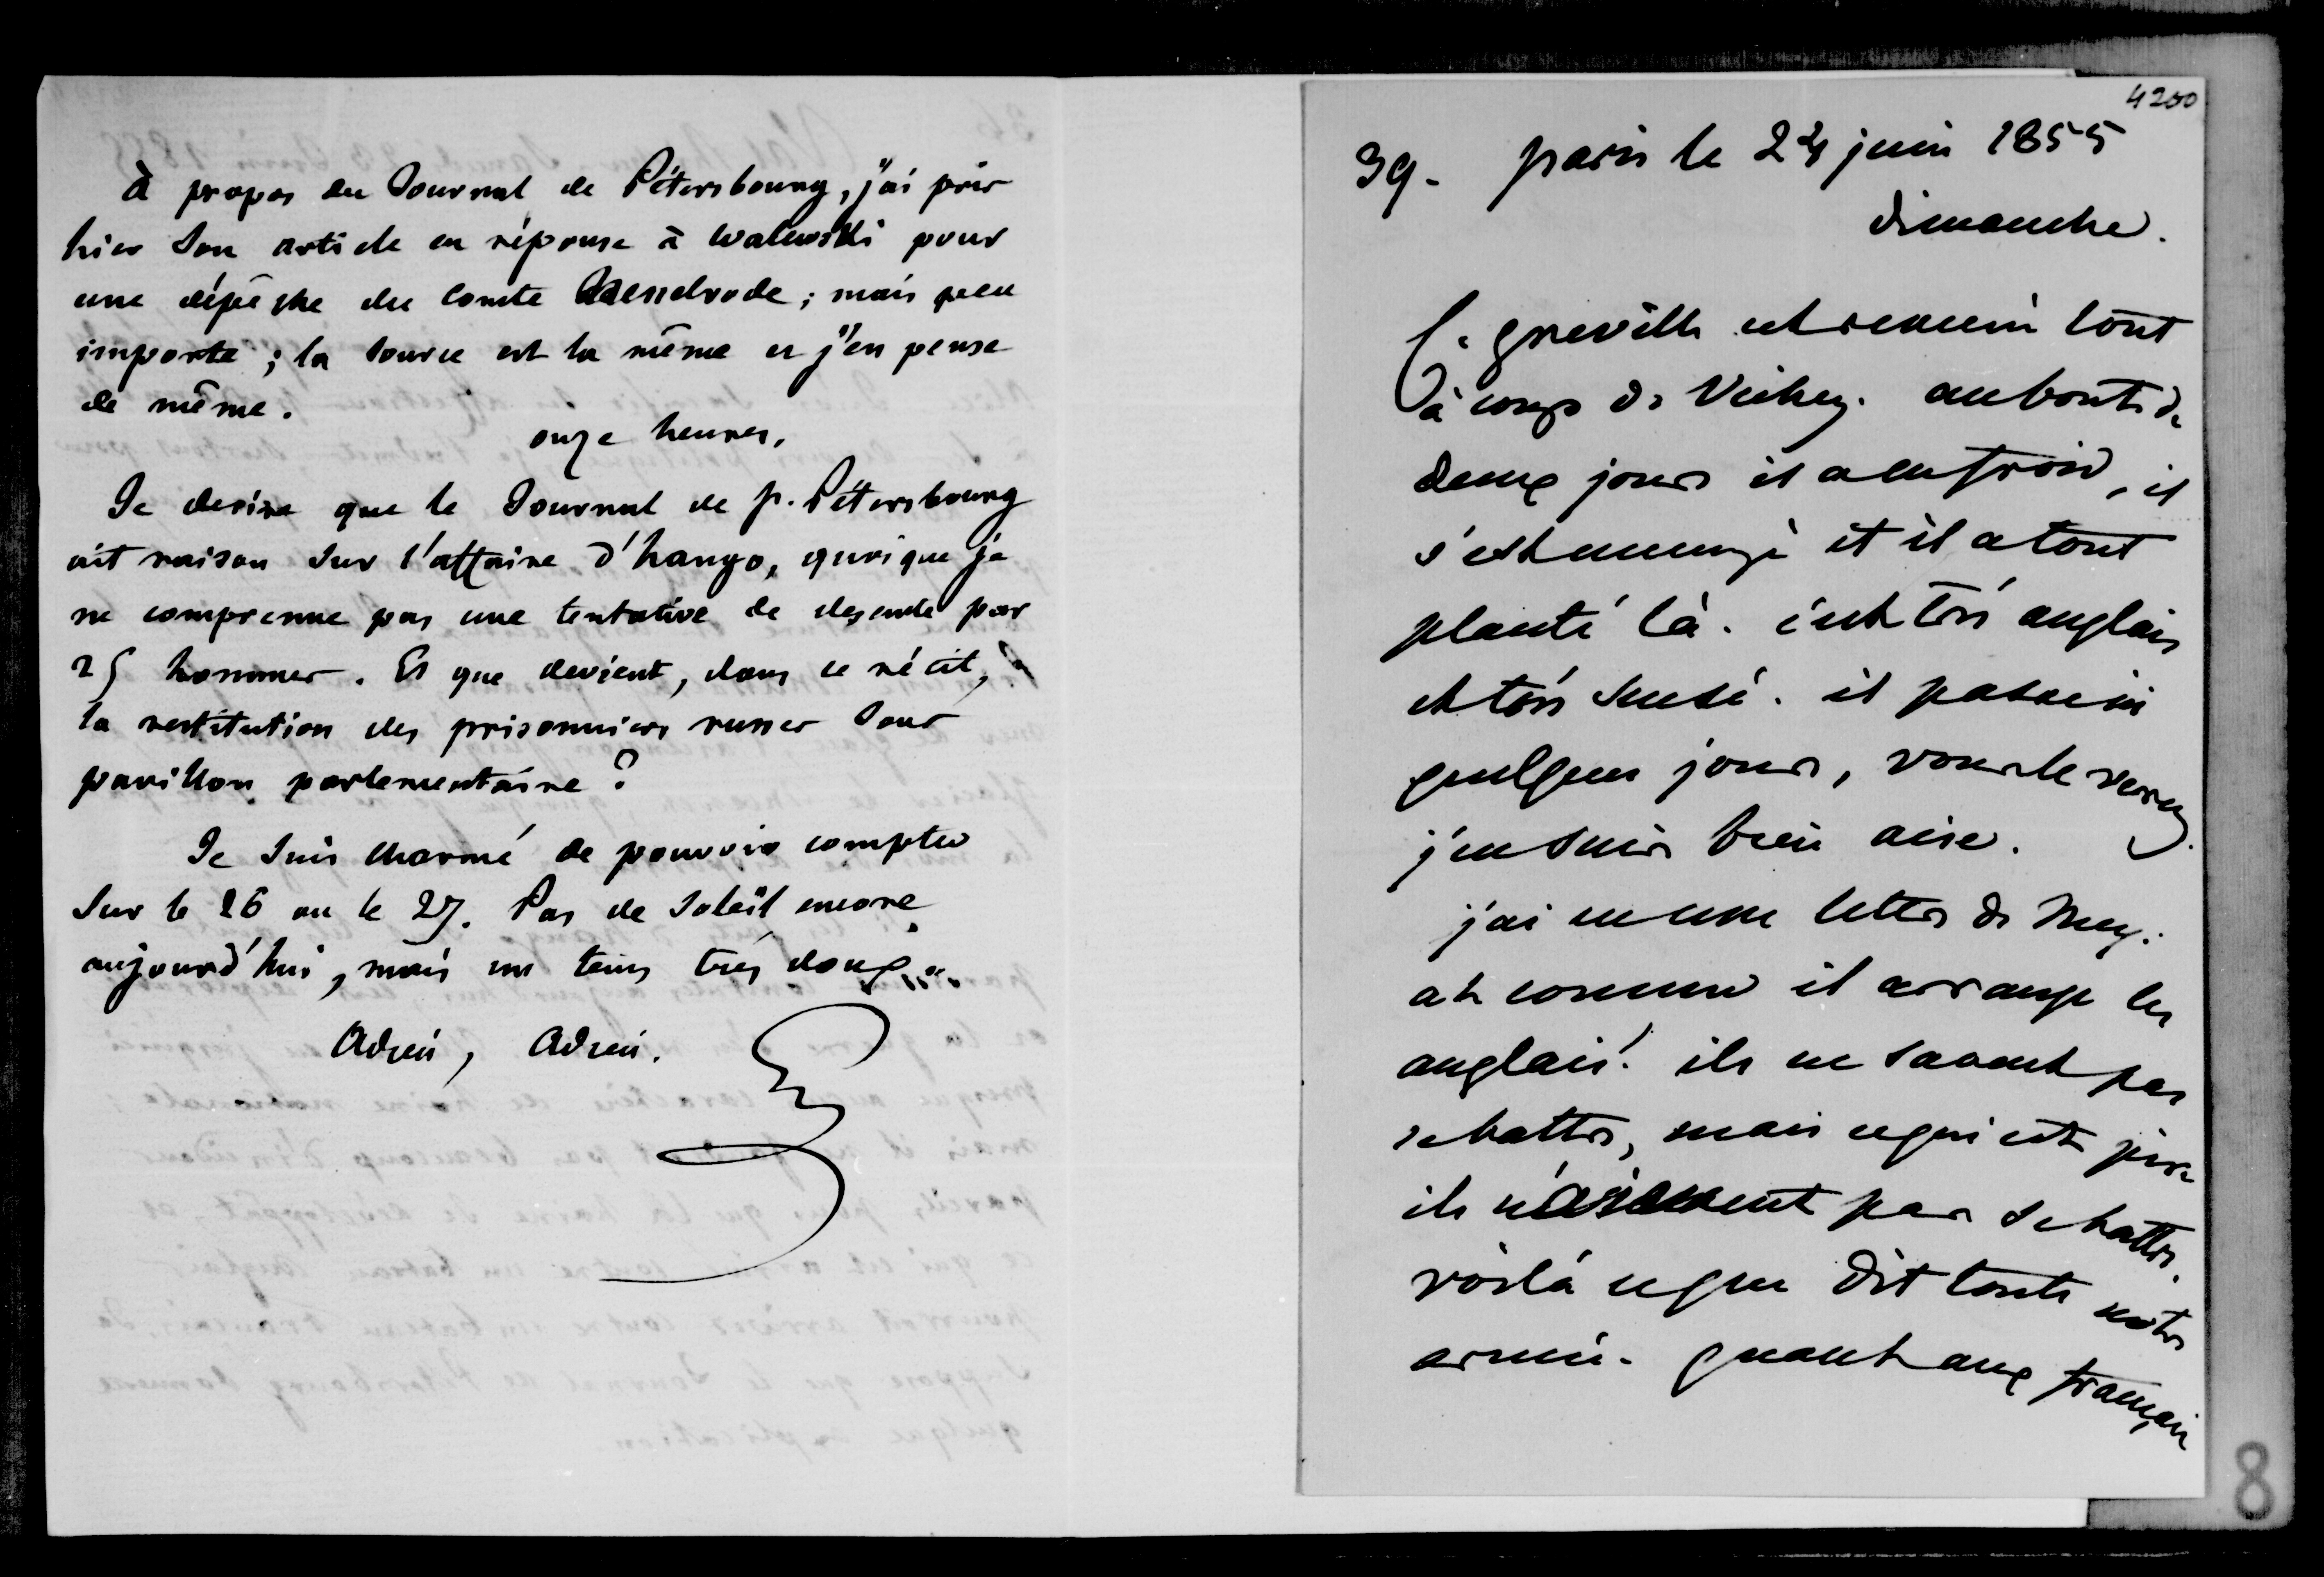 à propos du Journal de Pétersbourg, j'ai pris
hier son article en réponse à Walewski pour
une dépêche du comte Nesselrode ; mais peu
importe ; la source est la même et j'en pense
de même.
onze heures.
Je désire que le Journal de St. Pétersbourg
ait raison sur l'affaire d'hango, quoique je
ne comprenne pas une tentative de descente par
25 hommes. Et que devient, dans ce récit,
la restitution des prisonniers russes sous
pavillon parlementaire ?
Je suis charmé de pouvoir compter
sur le 26 ou le 27. Pas de soleil encore
aujourd'hui, mais un tems très doux.
Adieu, Adieu.
4200
39. paris le 24 juin 1855
dimanche.
C. greville est revenu tout
à coup de Vichy. au bout de
deux jours il a eu froid, il
s'est ennuyé et il a tout
planté là. c'est très anglais
et très sensé. il passe ici
quelques jours, vous le verrez.
j'en suis bien aise.
j'ai eu une lettre de Mey.
ah comme il arrange les
anglais! ils ne savent pas
se battre, mais ce qui est pire
ils n'aiment pas se battre.
voilà ce que dit toute notre
armée. quant aux français
8